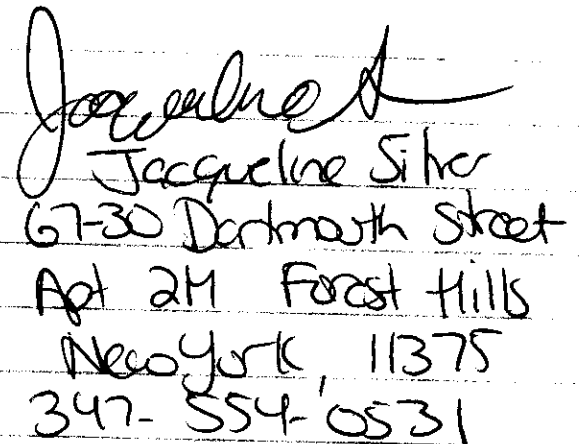 Jacqueline S
Jacqueline Silver
67-30 Dartmouth Street
Apt 2H Forest Hills
New York, 11375
347-554-0531